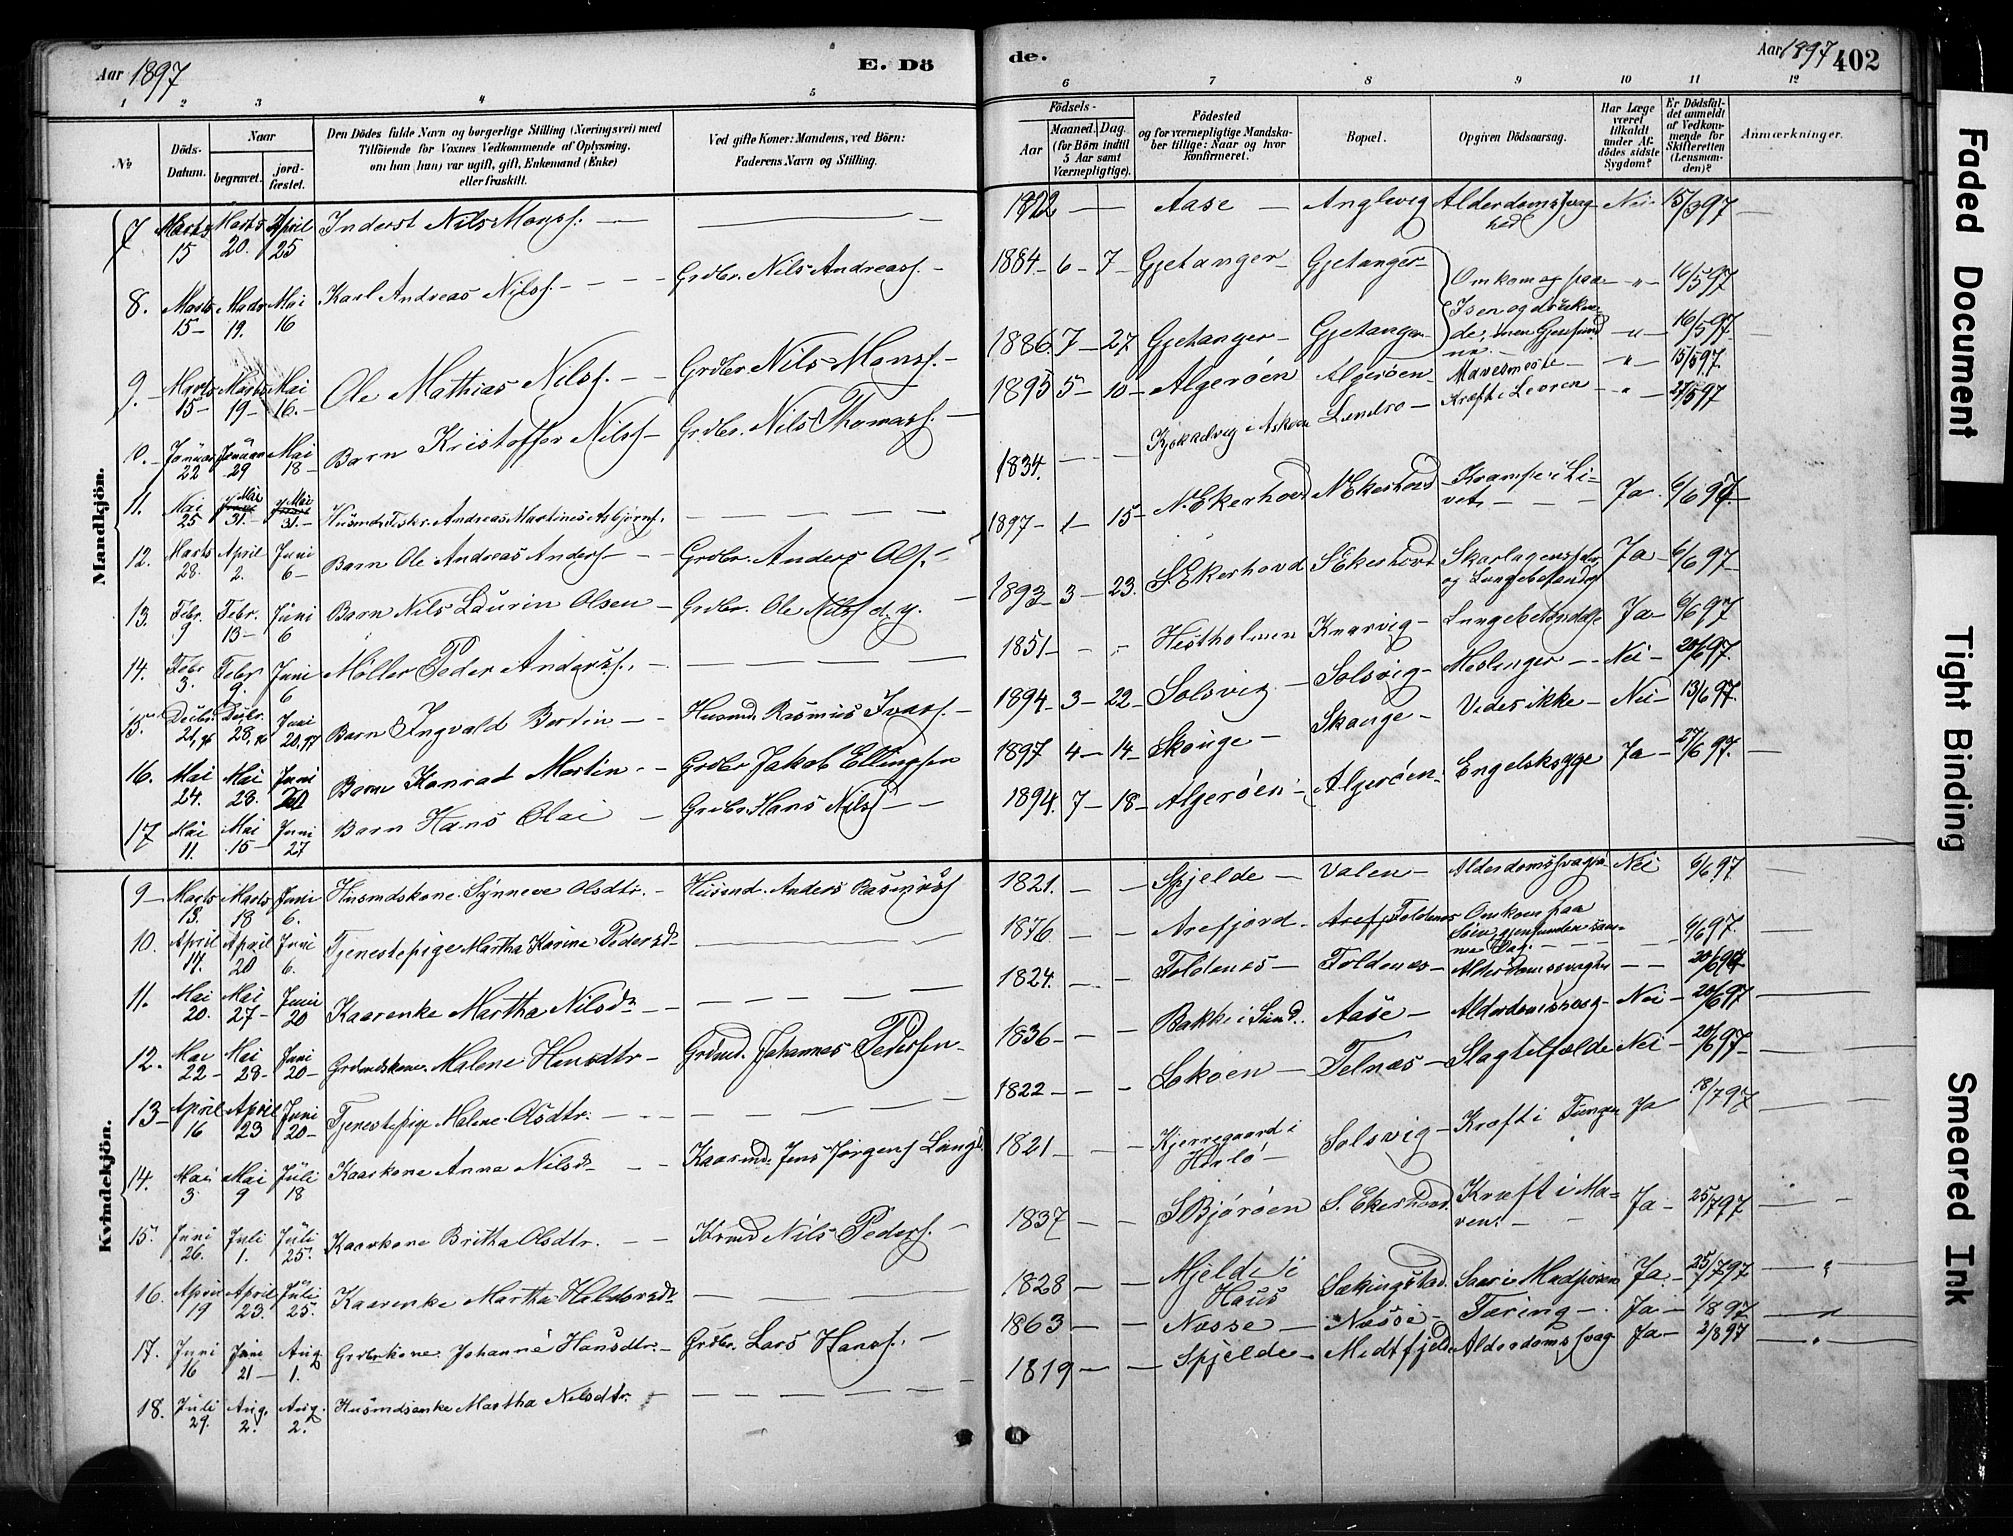 Aar 1897
E. Dö
de.
Aar 1897
402
1 2 3 4 5 6 7 8 9 10 11 12
No
Döds-Datum.
Naar
begravet.
jord-fæstet.
Den Dödes fulde Navn og borgerlige Stilling (Næringsvei) med
Tilföiende for Voxnes Vedkommende af Oplysning,
om han (hun) var ugift, gift, Enkemand (Enke)
eller fraskilt.
Ved gifte Koner: Mandens, ved Börn:
Faderens Navn og Stilling.
Födsels-
Aar
Maaned. Dag.
(for Börn indtil
5 Aar samt
Værnepligtige).
Födested
og for værnepligtige Mandska-
ber tillige: Naar og hvor
konfirmeret.
Bopæl.
Opgiven Dödsaarsag.
Har Læge
været
tilkaldt
under Af-
dödes sidste
Sygdom?
Er Dödsfal-
det anmeldt
af Vedkom-
mende for
Skifteretten
(Lensman-
den)?
Anmærkninger.
Mandkjön.
7 Marts 15 Marts 20. April 25 Inderst Nils Monss. — — 1822 — — Aase — Anglevig Alderdomssvaghed Nei 15/3 97 —
8. Marts 15 — Marts 19. Mai 16 Karl Andreas Nilss. — — — Grdbr. Nils Andreass. — 1884 — 6 — 7 — Gjetanger — Gjetanger — Omkom og paa — " — 16/5 97
9. — Marts 15 — Marts 19 — Mai 16. — Ole Mathias Nilss. — — Grdbr Nils Monss. — 1886. 7 — 27 Gjetanger — Gjetanger Isen og druknede, men Gjenfundne. — " — 16/5 97 —
10. — Januar 22 Januar 29 Mai 18 — Barn Kristoffer Nilss — Grdbr. Nils Thomass. — 1895 5 — 10 — Algeröen Algeröen — Mavesmerte — " — 15/5 97.
11. Mai 25 Mai 31. — Mai 31. — Husmd. Fisker Andreas Martines Asbjörns. — — — — — 1834. — — Kjokadvig i Askøen Landro — Kræft i Leveren — " — 27/5 97
12. Marts 28. April 2. Juni 6 — Barn Ole Andreas Anderss — — Grdbr. Anders Ols. — 1897 — 1 — 15 — N. Ekerhovd N. Ekerhovd — Krampe i Livet — — Ja. 6/6 97
13. Febr. 9 Febr. 13 — Juni 6 Barn Nils Laurin Olsen — Grdbr. Ole Nilss d. y. — 1893 — 3 — 23. S. Ekerhovd S. Ekerhovd Skarlagensfeber og Lungebetændelse Ja — 6/6 97 —
14. Febr 3. Febr 9. Juni 6 Møller Peder Anderss. — — — — — — 1851 — — — Hestholmen Knarvig — Lungebetændelse Ja — 6/6 97
15. Decbr. 21, 96 Decbr. 28, 96 Juni 20, 97 Barn Ingvald Bertin — — Husmd. Rasmus Ivars. — 1894 — 3 — 22 — Solsvig — Solsvig — Meslinger — — Nei — 20/6 97.
16. Mai 24. Mai 28. Juni 20 Barn Konrad Martin. — Grdbr Jakob Ellingsen 1897 4 — 14 — Skouge — Skauge — Vides ikke — Nei — 13/6 97.
17 Mai 11. Mai 15 — Juni 27 Barn Hans Olai — Grdbr. Hans Nilss — — 1894. 7 — 18 — Algeröen — Algeröen. Engelsksyge Ja — 27/6 97. —
Kvindekjön.
9 — Marts 13. Marts 18 Juni 6. Husmdskone Synneve Olsdtr. — Husmd. Anders Rasmuss 1821. — — Spjelde — Valen — Alderdomssvagh. Nei 6/6 97 —
10. April 14. April 20 Juni 6. Tjenestepige Martha Karine Pedersd. — — — 1876 — — Arefjord — Foldenes Omkom paa Söen, gjenfunden samme Dag. — — — 6/6 97. —
11. Mai 20. Mai 27 — Juni 20 Kaarenke Martha Nilsdr — — — — — — 1824. — — Foldenes — Foldenes — Alderdomssvaghed — — 20/6 97
12. Mai 22 — Mai 28 — Juni 20 — Grdmdskone Malene Hansdtr — Grdmd. Johannes Pedersen — 1836 — — Bakke i Sund. Aase — Alderdomssvag — Nei — 20/6 97 —
13 — April 16 April 23 Juni 20 — Tjenestepige Malene Olsdtr. — — — — — — 1822 — — Lokøen — Telnæs — Slagtilfælde Nei — 20/6 97 —
14. Mai 3 Mai 9 Juli 18 Kaarkone Anna Nilsd. — — Kaarmd. Jens Jørgens Lang 1821 — — Kjerregaard i Herlö — Solsvig — Kræft i Tungen Ja 18/7 97
15. Juni 26. Juli 1. Juli 25. Kaarkone Britha Olsdtr. — — Krmd Nils Peders. — 1837 — — S Björöen S. Ekerhovd. Kræft i Maven. — — Ja — 25/7 97 — —
16. April 19 April 23. Juli 25. Kaarenke Martha Haldorsdr — — — — 1828 — — Mjelde i Haus Sækingstad. Saar i Madpiben Ja. — 25/7 97 — "
17. Juni 16 Juni 21 — Aug 1. Grdbrkone. Johanne Hansdtr. — Grdbr. Lars Hanss. — 1863 — — Nesse — Nesse — Tæring — Ja — 1/8 97 — "
18. Juli 29. Aug. 2. Aug. 2. Husmdsenke Martha Nilsdtr. — — — — — 1819 — — Spjelde — Midtfjeld Alderdomssvag Ja — 2/8 97 — "
Faded Document
Tight Binding
Smeared Ink